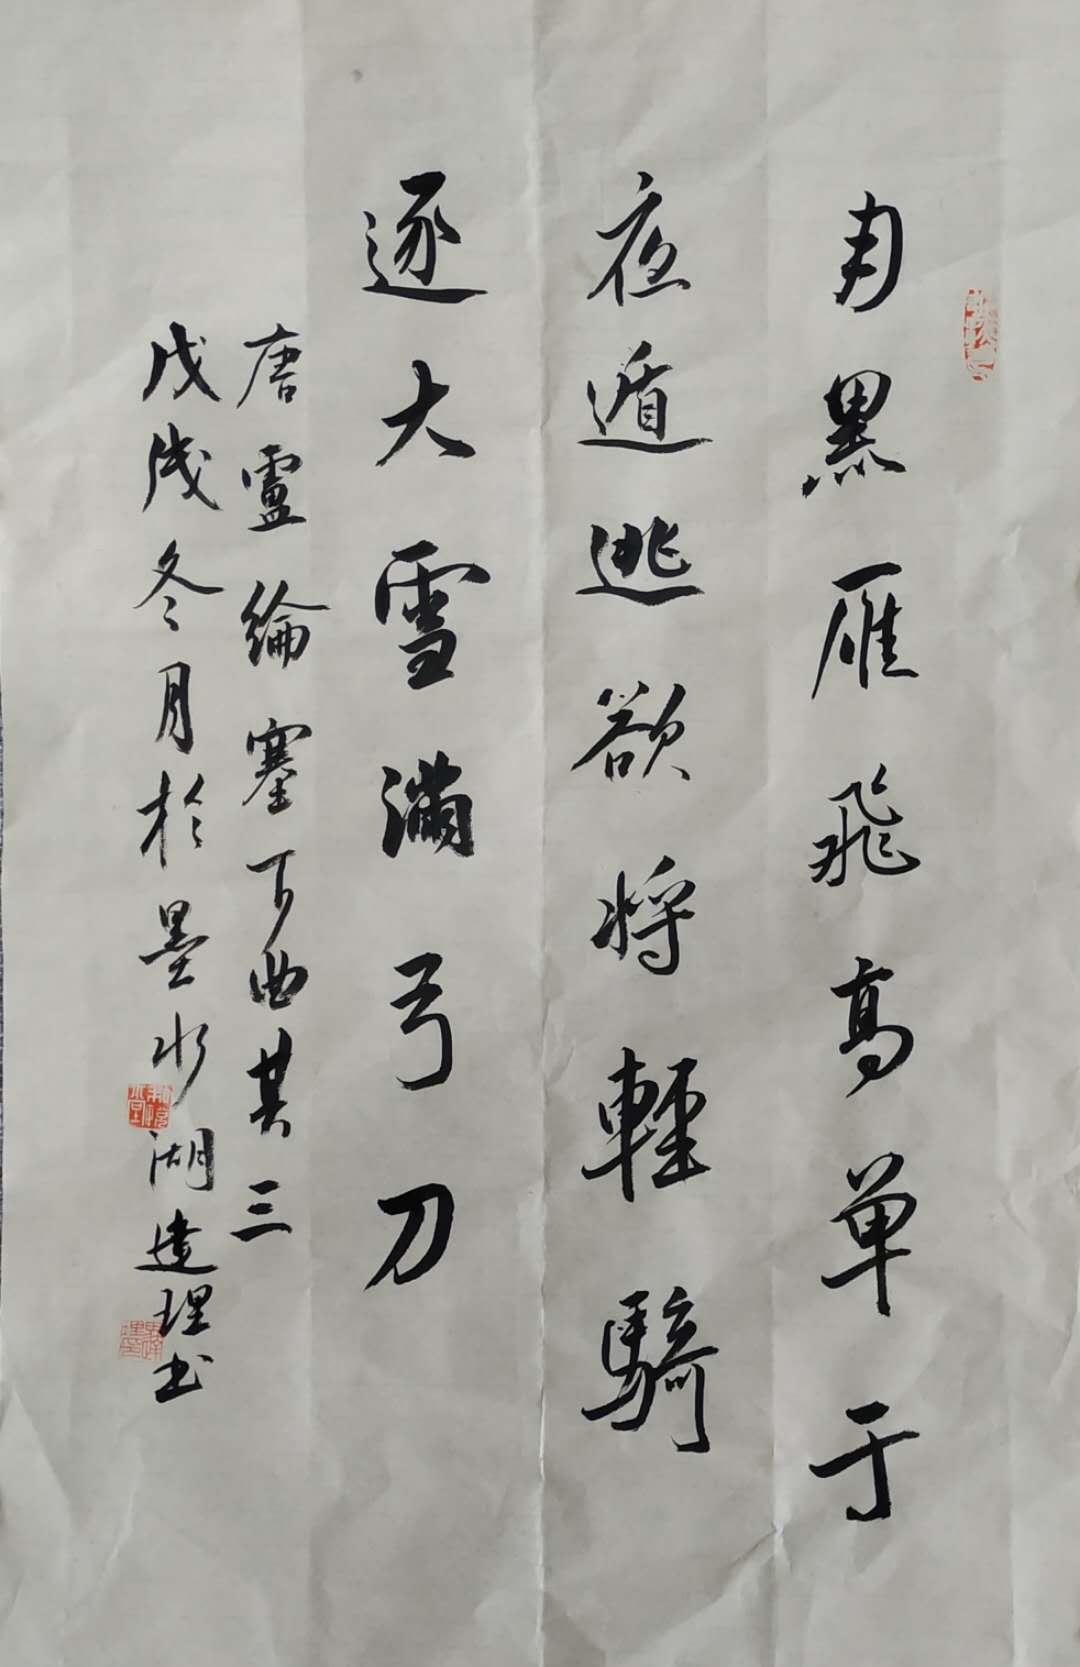 月黑雁飛高单于
夜遁逃欲将輕騎
逐大雪满弓刀
唐盧綸塞下曲其三
戊戌冬月於墨水湖達理书